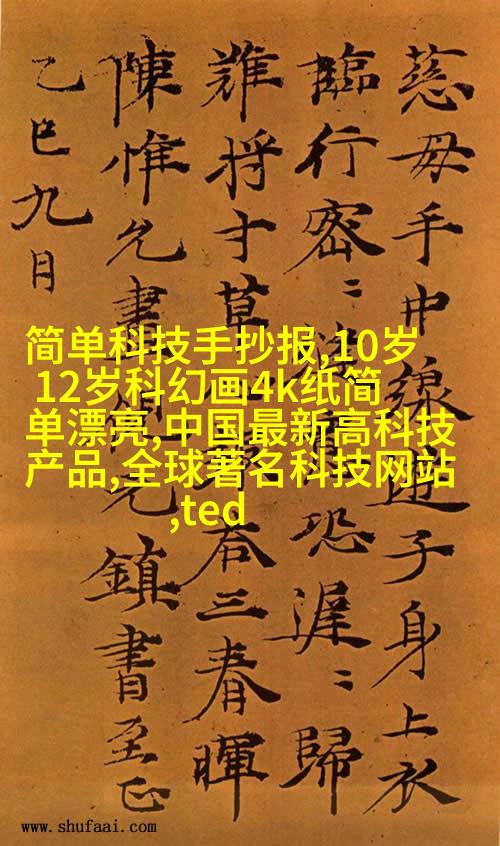 慈母手中線遊子身上衣
臨行密〻縫恐遲〻歸
難将寸草荅三春暉
陳惟允書元鎮書至正
乙巳九月
简单科技手抄报,10岁
12岁科幻画4k纸简
单漂亮,中国最新高科技
产品,全球著名科技网站
,ted
www.shufaai.com